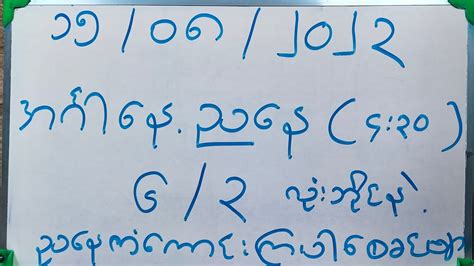 ၁၅ / ၀၈ / ၂၀၂၃
အင်္ဂါနေ့ ညနေ (၄:၃၀)
၆ / ၃ လုံးဘိုင်နဲ့
ညနေကံကောင်းကြပါစေခင်ဗျာ